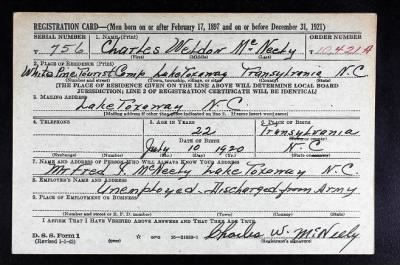 REGISTRATION CARD—(Men born on or after February 17, 1897 and on or before December 31, 1921)
SERIAL NUMBER 1. NAME (Print) ORDER NUMBER
T 756 Charles Weldon McNeely T 10,421A
2. PLACE OF RESIDENCE (Print)
White Pine Tourist Camp Lake Toxaway Transylvania N.C.
(Number and street) (Town, township, village, or city) (County) (State)
[THE PLACE OF RESIDENCE GIVEN ON THE LINE ABOVE WILL DETERMINE LOCAL BOARD
JURISDICTION; LINE 2 OF REGISTRATION CERTIFICATE WILL BE IDENTICAL]
3. MAILING ADDRESS
Lake Toxoway N.C
[Mailing address if other than place indicated on line 2. If same insert word same]
4. TELEPHONE 5. AGE IN YEARS 6. PLACE OF BIRTH
22 Transylvania
DATE OF BIRTH (Town or county)
July 10 1920 N.C
(Exchange) (Number) (Mo.) (Day) (Yr.) (State or country)
7. NAME AND ADDRESS OF PERSON WHO WILL ALWAYS KNOW YOUR ADDRESS
Mr Fred McNeely Lake Toxoway N.C.
8. EMPLOYER'S NAME AND ADDRESS
Unemployed. Discharged from Army
9. PLACE OF EMPLOYMENT OR BUSINESS
(Number and street or R. F. D. number) (Town) (County) (State)
I AFFIRM THAT I HAVE VERIFIED ABOVE ANSWERS AND THAT THEY ARE TRUE.
D. S. S. Form 1
(Revised 1-1-42) (over) Charles W. McNeely
(Registrant's signature)